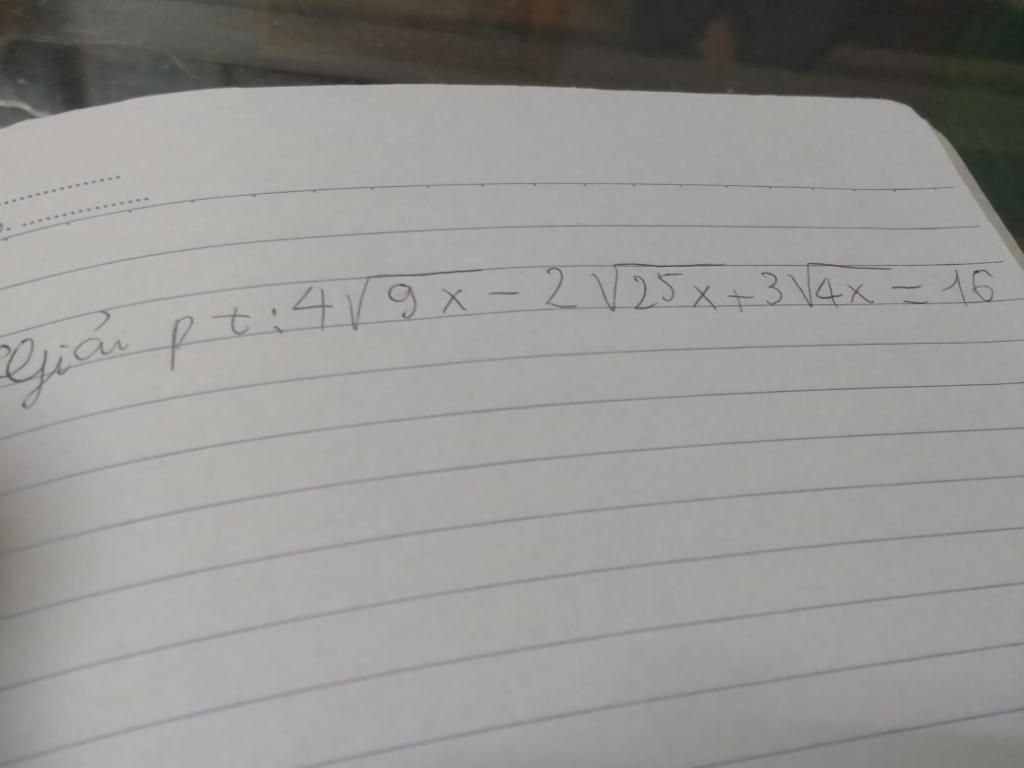 Giải pt: 4√9x - 2√25x + 3√4x = 16